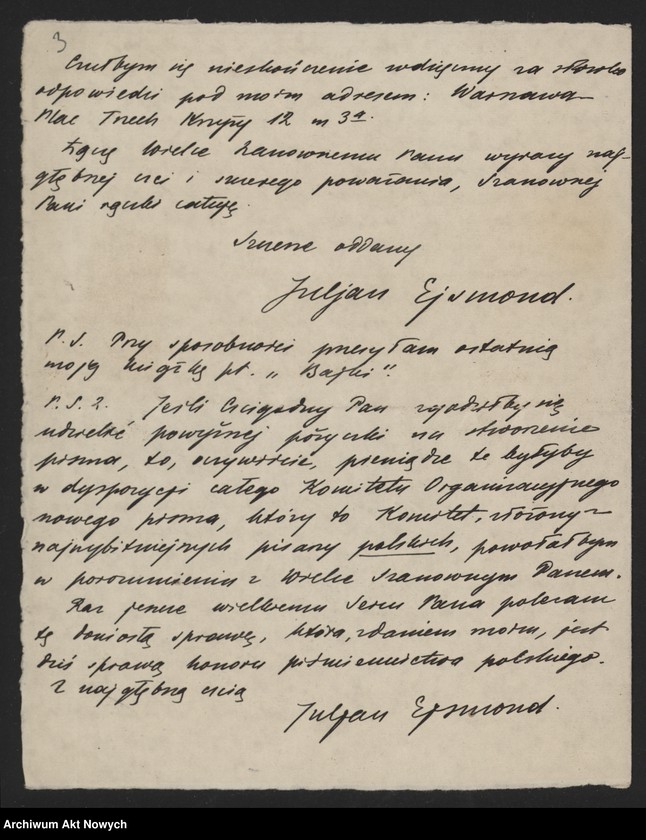 3
Czułbym się nieskończenie wdzięczny za słówko
odpowiedzi pod moim adresem: Warszawa
Plac Trzech Krzyży 12 m 3ª.
Łączę Wielce Szanownemu Panu wyrazy naj-
głębszej czci i szczerego poważania, Szanownej
Pani rączki całuję.
Szczerze oddany
Juljan Ejsmond.
P.S. Przy sposobności przesyłam ostatnią
moją książkę pt. „Bajki".
P.S.2. Jeśli Czcigodny Pan zgodziłby się
udzielić powyższej pożyczki na stworzenie
pisma, to, oczywiście, pieniądze te byłyby
w dyspozycji całego Komitetu Organizacyjnego
nowego pisma, który to Komitet, złożony z
najwybitniejszych pisarzy polskich, powołałbym
w porozumieniu z Wielce Szanownym Panem.
Raz jeszcze wielkiemu Sercu Pana polecam
tę doniosłą sprawę, która, zdaniem moim, jest
dziś sprawą honoru piśmiennictwa polskiego.
Z najgłębszą czcią
Juljan Ejsmond.
Archiwum Akt Nowych